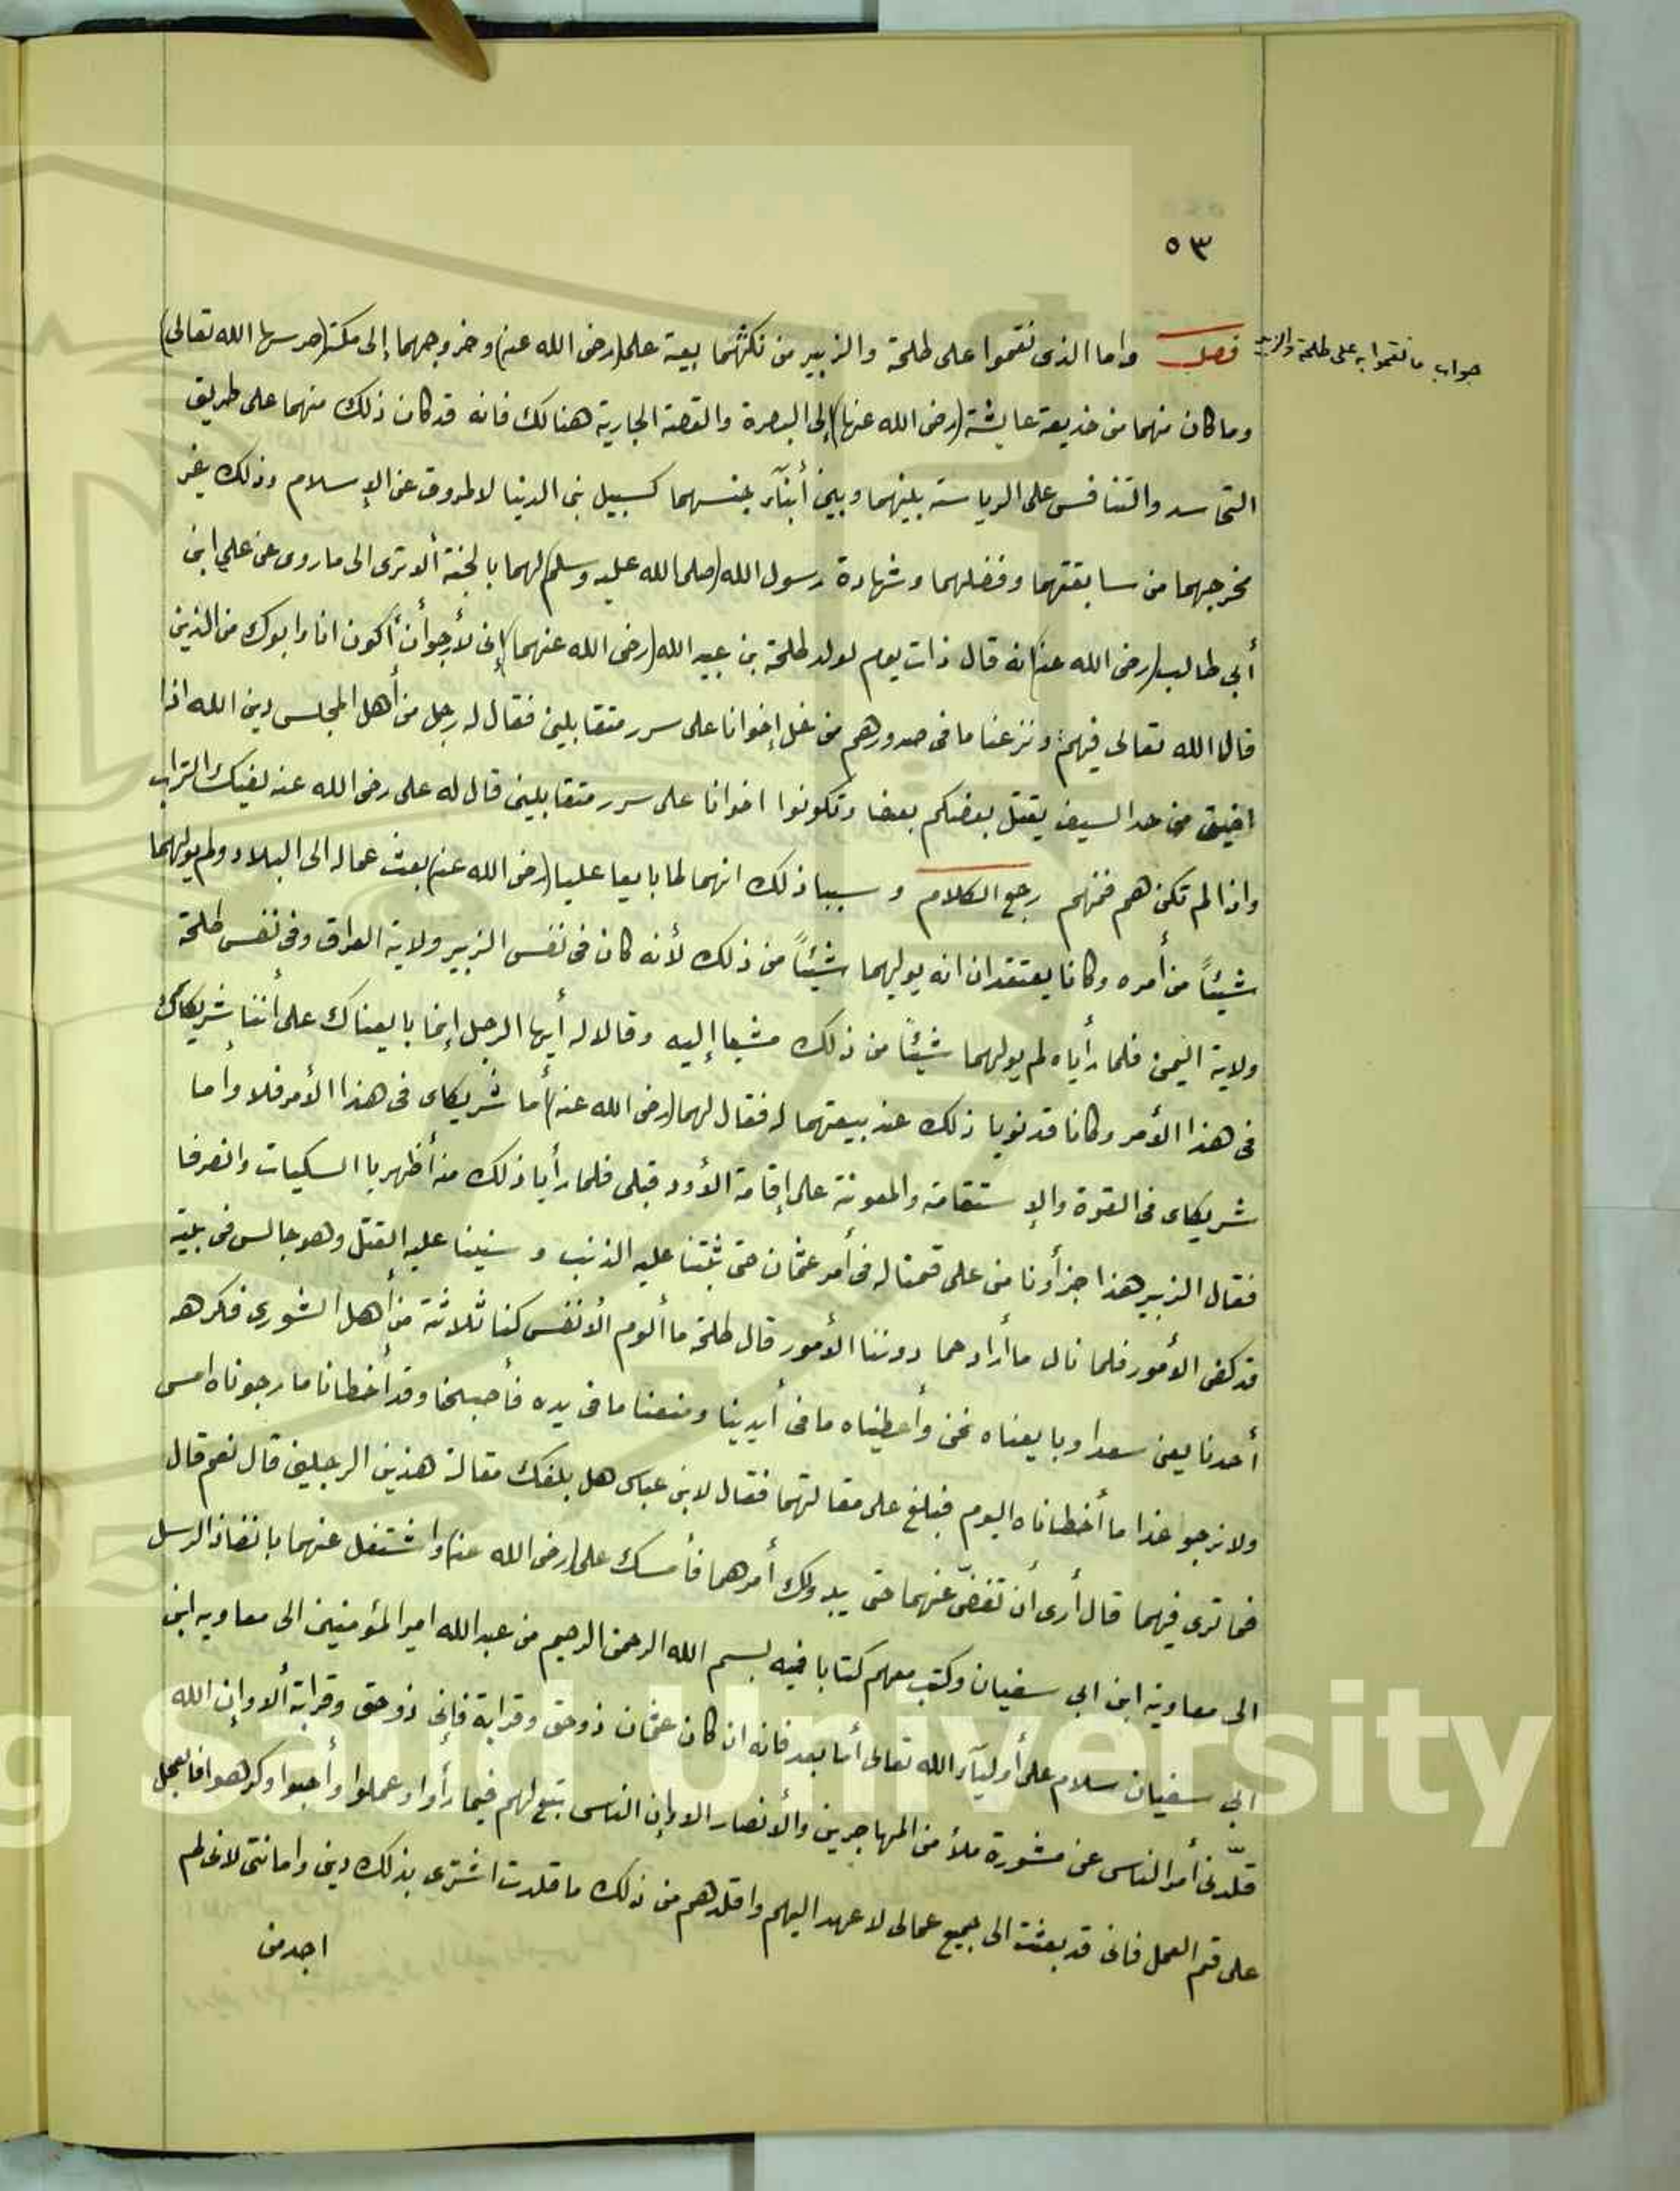 ٥٣
جواب ما نقموا به على طلحة والزبير
فصل واما الذى نقموا على طلحة والزبير من نكثهما بيعة على (رضى الله عنه) وخروجهما إلى مكة (حرسها الله تعالى)
وما كان منهما من خديعة عايشة (رضى الله عنها) إلى البصرة والقصة الجارية هنالك فانه قد كان ذلك منهما على طريق
التحاسد والتنافس على الرياسة بينهما وبين أبنآء جنسهما كسبيل بنى الدينا لا لمروق عن الإسلام وذلك غير
مخرجهما من سابقتهما وفضلهما وشهادة رسول الله (صلى الله عليه وسلم) لهما بالجنة ألا ترى الى ما روى عن علي ابن
أبي طالب (رضى الله عنه) انه قال ذات يوم لولد طلحة بن عبيد الله (رضى الله عنهما) إنى لأرجو أن أكون انا وابوك من الذين
قال الله تعالى فيهم ونزعنا ما فى صدورهم من غل إخوانا على سرر متقابلين فقال له رجل من أهل المجلس دين الله اذا
اضيق من حد السيف يقتل بعضكم بعضا وتكونوا اخوانا على سرر متقابلين قال له على رضى الله عنه بفيك التراب
واذا لم تكن هم فمنهم رجع الكلام وسببا ذلك انهما لما بايعا عليا (رضى الله عنه) بعث عماله الى البلاد ولم يولهما
شيئاً من أمره وكانا يعتقدان انه يوليهما شيئاً من ذلك لأنه كان فى نفس الزبير ولاية العراق وفى نفس طلحة
ولاية اليمن فلما رأياه لم يولهما شيئاً من ذلك مشيا إليه وقالا له أيها الرجل إنما بايعناك على أننا شريكاك
فى هذا الأمر وكانا قد نويا ذلك عند بيعتهما له فقال لهما (رضى الله عنه) أما شريكاى فى هذا الأمر فلا وأما
شريكاى فى القوة والإستقامة والمعونة على إقامة الأود فبلى فلما رأيا ذلك منه أظهريا السكيات وانصرفا
فقال الزبير هذا جزآؤنا من على قمنا له فى أمر عثمان حتى ثبتنا عليه الذنب وسنينا عليه القتل وهو جالس فى بيته
قد كفى الأمور فلما نال ما أراد حما دوننا الأمور قال طلحة ما ألوم الأنفس كنا ثلاثة من أهل الشورى فكرهه
أحدنا يعنى سعدا وبايعناه نحن وأعطيناه ما فى أيدينا ومنعنا ما فى يده فأصبحنا وقد أخطانا ما رجوناه امس
ولا نرجو غدا ما أخطاناه اليوم فبلغ على مقالتهما فقال لابن عباس هل بلغك مقالة هذين الرجلين قال نعم قال
فما ترى فيهما قال أرى أن تغضّ عنهما حتى يبدو لك أمرهما فأمسك على (رضى الله عنه) واشتغل عنهما بانفاذ الرسل
الى معاوية ابن ابي سفيان وكتب معهم كتابا فيه بسم الله الرحمن الرحيم من عبد الله امير المؤمنين الى معاويه ابن
ابي سفيان سلام على أوليآء الله تعالى أما بعد فانه ان كان عثمان ذو حق وقرابة فإنى ذو حق وقرابة ألا وإن الله
قلّدنى أمر الناس عن مشورة ملأ من المهاجرين والأنصار الا وإن الناس تبع لهم فيما رأوا وعملوا وأحبوا وكرهوا فالعجل
على ثم العجل فانى قد بعثت الى جميع عمالى لاعهد اليهم واقلدهم من ذلك ما قلدت اشترى بذلك دينى وامانتى لانى لم
اجد من